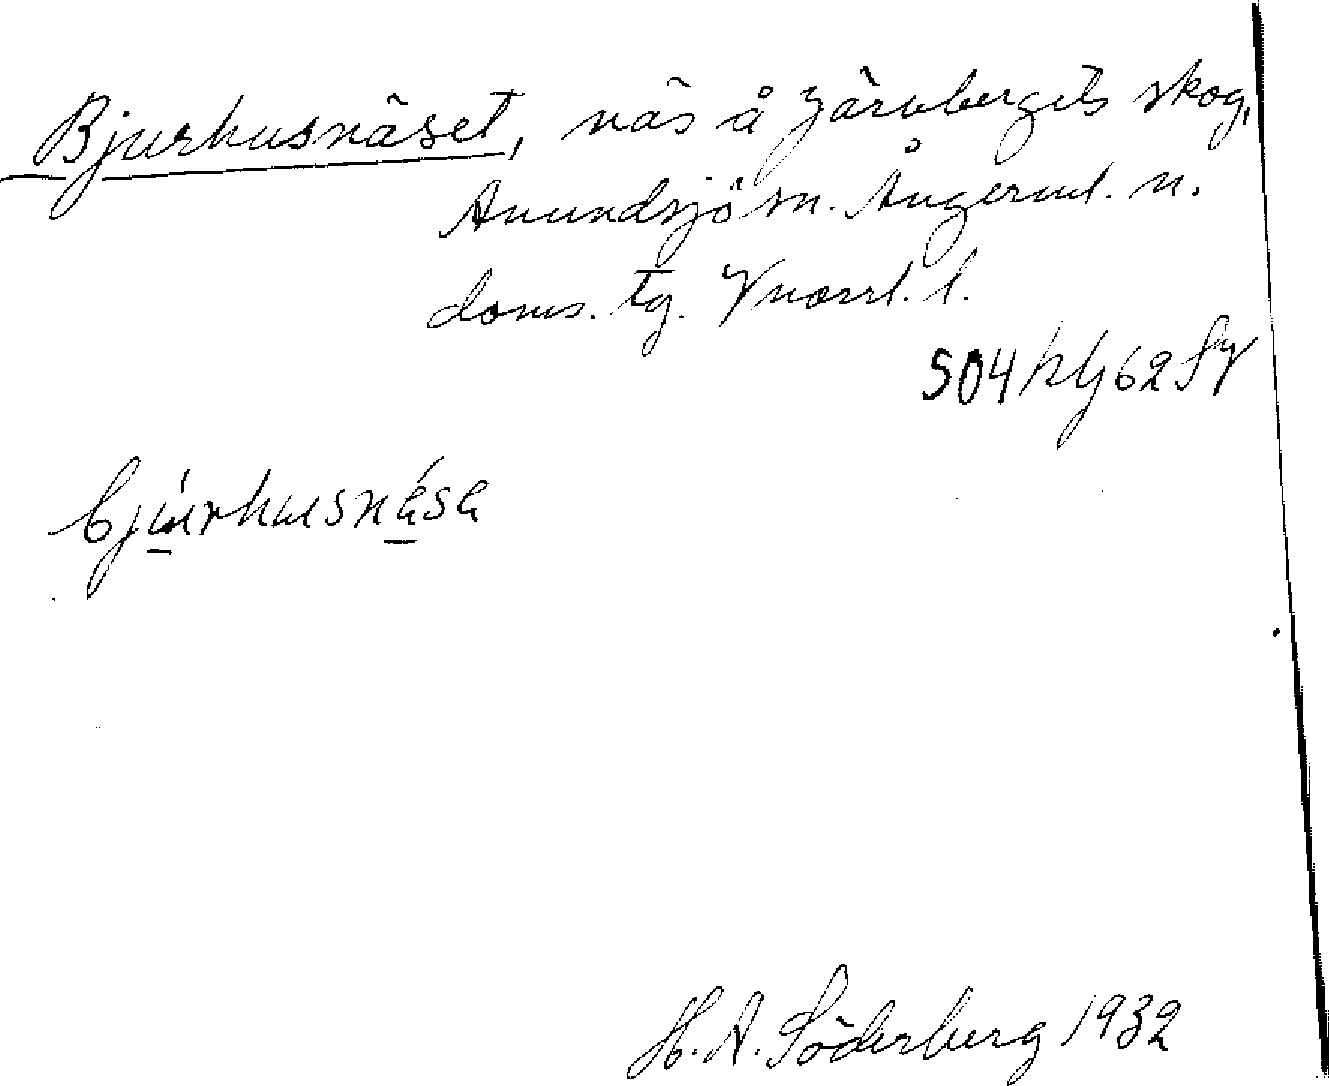 Bjurhusnäset, näs å Järvbergets skog,
Anundsjö sn. Ångerml. n.
doms. tg. Vnorrl. l.
504 hlj 62 SV
bjúrhusnása
H. A. Söderberg 1932